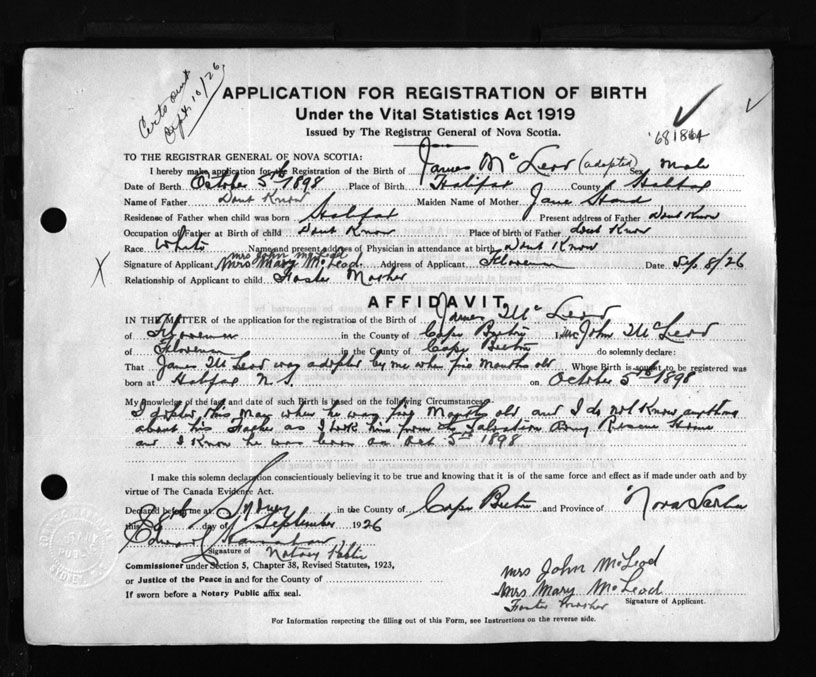 Certs out
Sept 10/26
APPLICATION FOR REGISTRATION OF BIRTH
Under the Vital Statistics Act 1919
Issued by The Registrar General of Nova Scotia.
TO THE REGISTRAR GENERAL OF NOVA SCOTIA:
I hereby make application for the Registration of the Birth of James McLeod (adopted) Sex Male
Date of Berth October 5th 1898 Place of Birth Halifax County Halifax
Name of Father Dont Know Maiden Name of Mother Jane
Residense of Father when child was born Halifax Present address of Father Dont Know
Occupation of Father at Birth of child Dont Know Place of birth of Father Dont Know
Race White Name and present address of Physician in attendance at birth Dont Know
Mrs John McLeod
Signature of Applicant Mrs Mary McLeod Address of Applicant Florence Date Sep 8/26
Relationship of Applicant to child Foster Mother
X
AFFIDAVIT
IN THE MATTER of the application for the registration of the Birth of James McLeod
of Florence in the County of Cape Breton I, Mrs John McLeod
of Florence in the County of Cape Breton do solemnly declare:
That James McLeod was adopted by me when months old Whose Birth is sought to be registered was
born at Halifax N.S. on October 5th 1898
My knowledge of the fact and date of such Birth is based on the following Circumstances
I adopted this Man when he was Months old and I do not Know anything
about his Father as I took him from the Salvation Army Rescue Home
and I Know he was born on Oct 5th 1898
I make this solemn declaration conscientiously believing it to be true and knowing that it is of the same force and effect as if made under oath and by
virtue of The Canada Evidence Act.
Declared before me at Sydney in the County of Cape Breton and Province of Nova Scotia
this 8th day of September 1926
Edward
Signature of Notary Public
Commissioner under Section 5, Chapter 38, Revised Statutes, 1923,
or Justice of the Peace in and for the County of
If sworn before a Notary Public affix seal.
Mrs John McLeod
Mrs Mary McLeod
Foster Mother
Signature of Applicant.
For Information respecting the filling out of this Form, see Instructions on the reverse side.